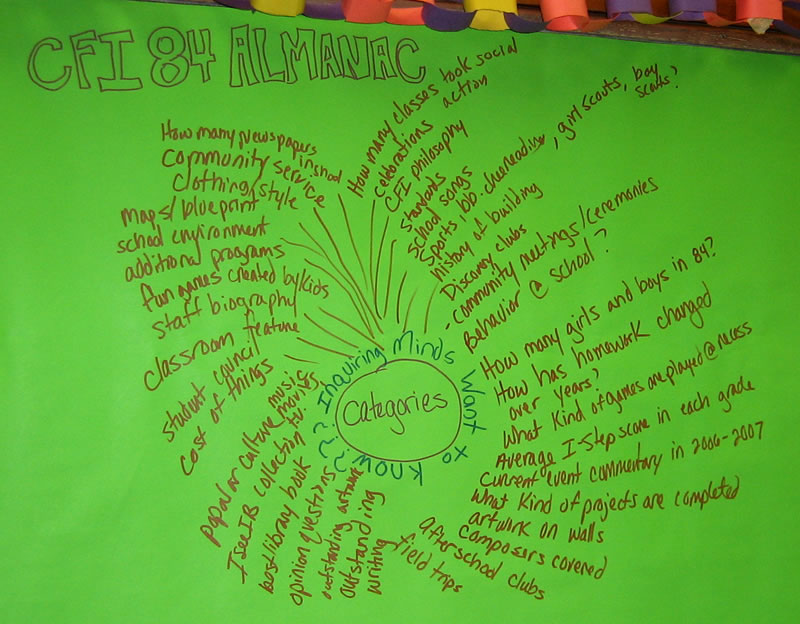 CFI 84 ALMANAC
How many classes took social
action
celebrations
CFI philosophy
standards
school songs
sports, bb, cheerleading, girl scouts, boy
scouts?
history of building
Discovery clubs
- community meetings/ceremonies
Behavior @ school?
How many girls and boys in 84?
How has homework changed
over years?
What kind of games are played @ recess
Average I-step score in each grade
current event commentary in 2006-2007
What kind of projects are completed
artwork on walls
composers covered
afterschool clubs
field trips
outstanding
writing
outstanding artwork
opinion questions
best library book
I see IB collection
popular culture
music
movies
t.v.
cost of things
student council
classroom feature
staff biography
fun games created by kids
additional programs
school environment
maps/blueprint
clothing/style
community service
How many Newspapers
in school
Inquiring Minds Want to Know???
Categories